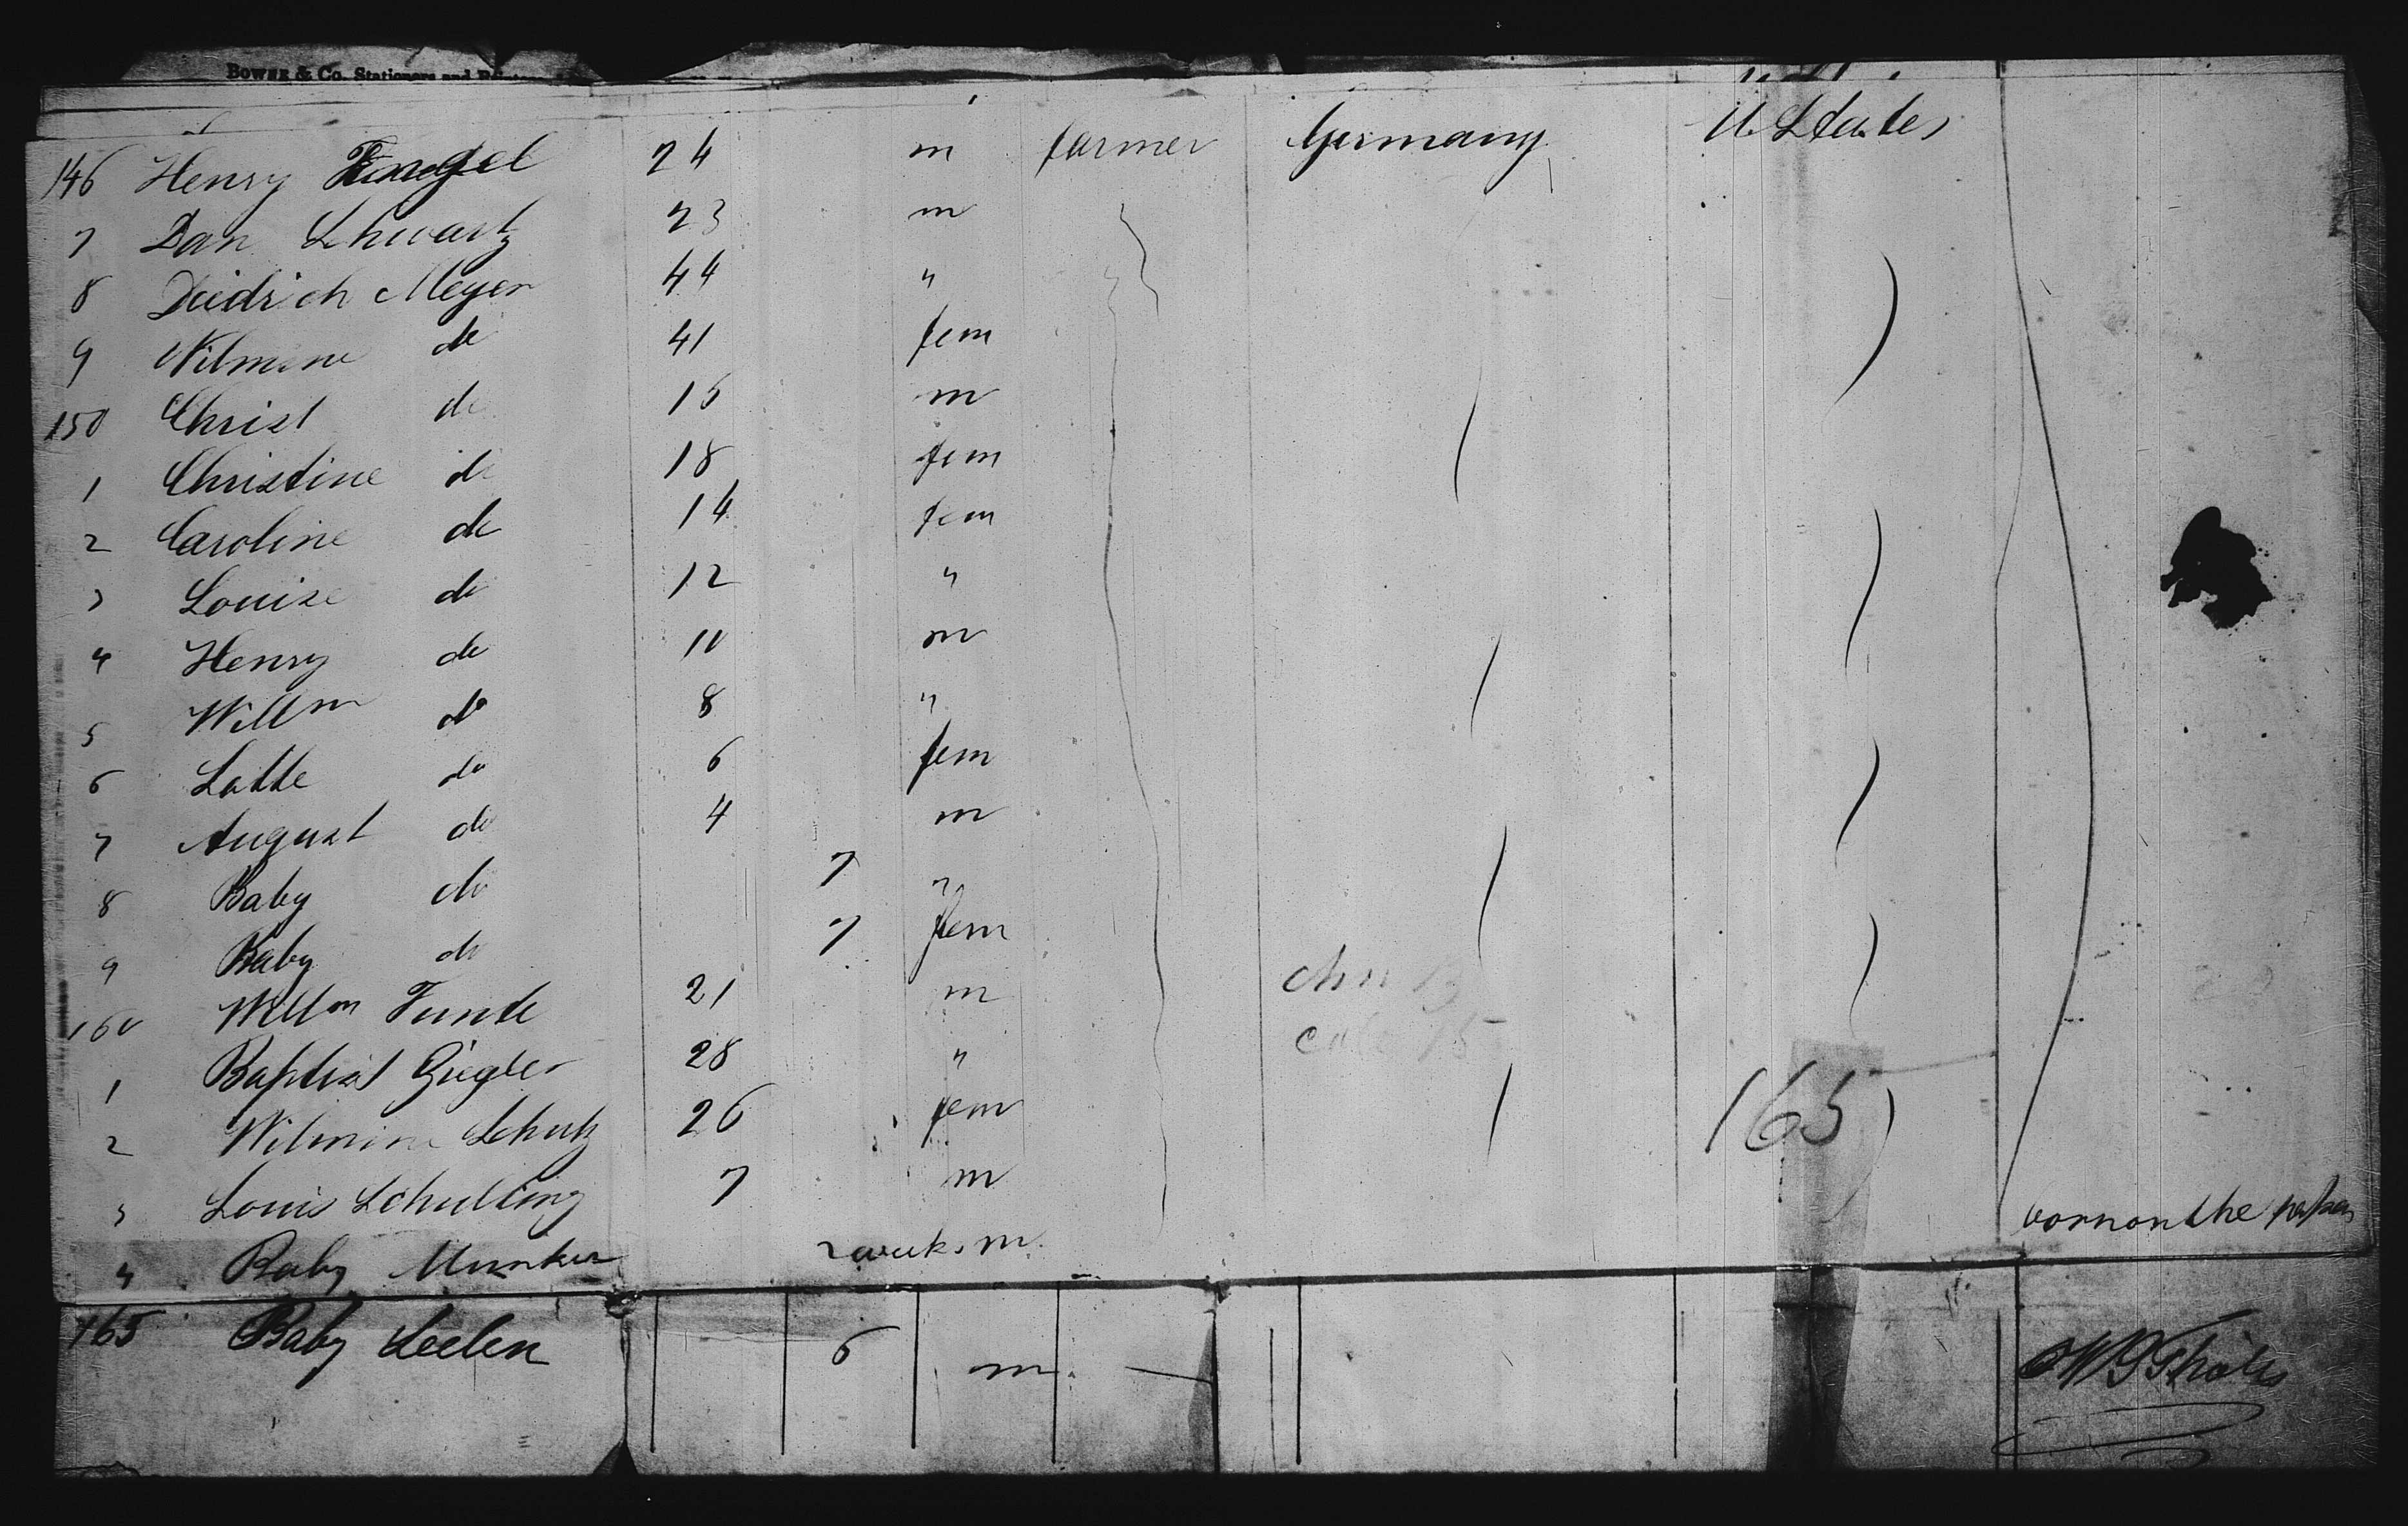 BOWNE & CO. Stationers and
146 Henry Engel 24 m farmer Germany U. States
7 Dan Schwartz 23 m
8 Diedrich Meyer 44 "
9 Wilmine do 41 fem
150 Christ do 15 m
1 Christine do 18 fem
2 Caroline do 14 fem
3 Louise do 12 "
4 Henry do 10 m
5 Willm do 8 "
6 Lotte do 6 fem
7 August do 4 m
8 Baby do 7 "
9 Baby do 7 fem
160 Willm Funde 21 m
1 Baptist Ziegler 28 "
2 Wilmine Schutz 26 fem 165
3 Louis Schulling 7 m
4 Baby Munker 2 weeks m born on the
165 Baby Seelen 6 m